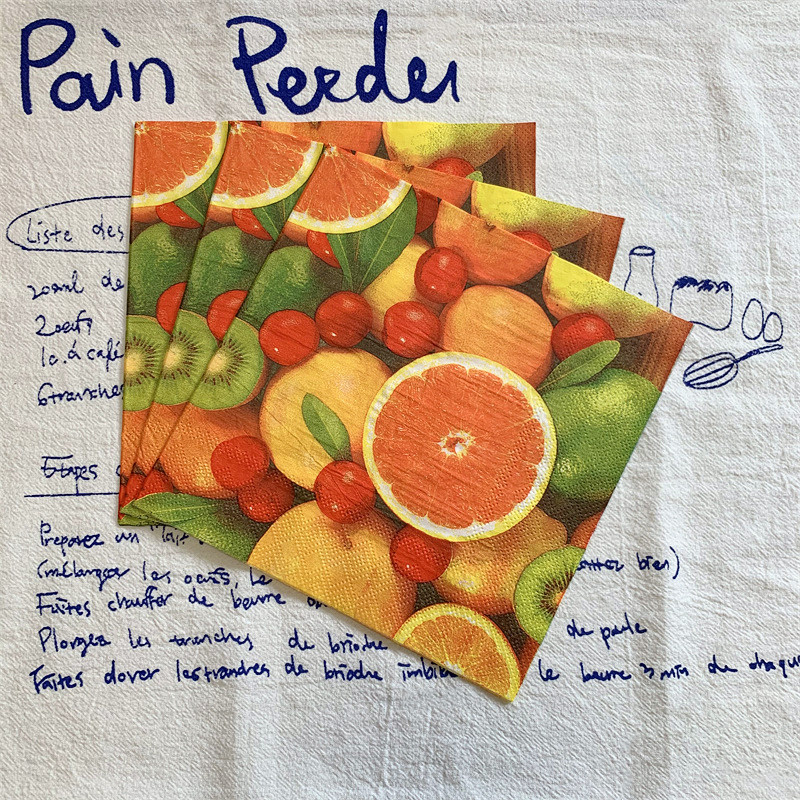 Pain Perdu
Liste des
200ml de
2oeufs
1c.à café
6tranches
Etapes
Preparez un lait
(mélangez les oeufs, le bien)
Faites chauffer de beurre
Plongez les tranches de brioche de parle
Faites dorer les trandres de brioche imbibé le beurre 3 min de chaque